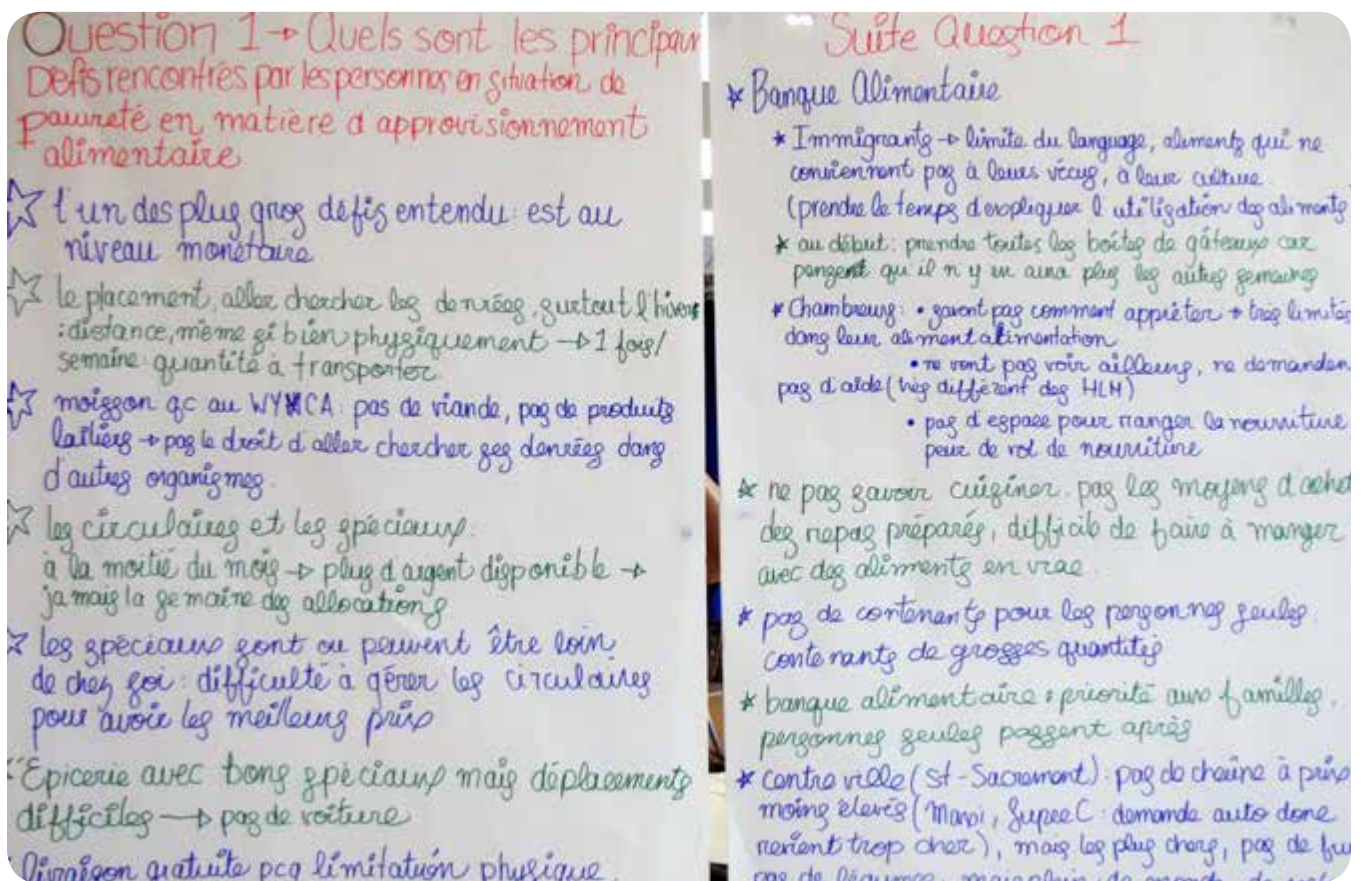 Question 1 → Quels sont les principaux
Défis rencontrés par les personnes en situation de
pauvreté en matière d'approvisionnement
alimentaire
☆ l'un des plus gros défis entendu : est au
niveau monétaire
☆ le placement, aller chercher les denrées, surtout l'hiver
: distance, même si bien physiquement → 1 fois/
semaine : quantité à transporter
☆ moisson qc au WYMCA : pas de viande, pas de produits
laitiers → pas le droit d'aller chercher ses denrées dans
d'autres organismes.
☆ les circulaires et les spéciaux :
à la moitié du mois → plus d'argent disponible →
jamais la semaine des allocations
☆ les spéciaux sont ou peuvent être loin
de chez soi : difficulté à gérer les circulaires
pour avoir les meilleurs prix
Épicerie avec bons spéciaux mais déplacements
difficiles → pas de voiture
livraison gratuite pcq limitation physique
Suite Question 1
* Banque Alimentaire
* Immigrants → limite du language, aliments qui ne
conviennent pas à leurs vécus, à leur culture
(prendre le temps d'expliquer l'utiligation des aliments
* au début : prendre toutes les boîtes de gâteaux car
pensent qu'il n'y en aura plus les autres semaines
* Chambreurs : • savent pas comment apprêter → très limités
dans leur aliment alimentation
• ne vont pas voir ailleurs, ne demanden
pas d'aide (très différent des HLM)
• pas d'espace pour ranger la nourriture
peur de vol de nourriture
* ne pas savoir cuisiner. pas les moyens d'achet
des repas préparés, difficile de faire à manger
avec des aliments en vrac.
* pas de contenants pour les personnes seules.
contenants de grosses quantités
* banque alimentaire : priorité aux familles.
personnes seules passent après
* centre ville (St-Sacrement) : pas de chaîne à prix
moins élevés (Maxi, Super C : demande auto donc
revient trop cher), mais les plus chers, pas de fru
pas de légumes, mais plein de